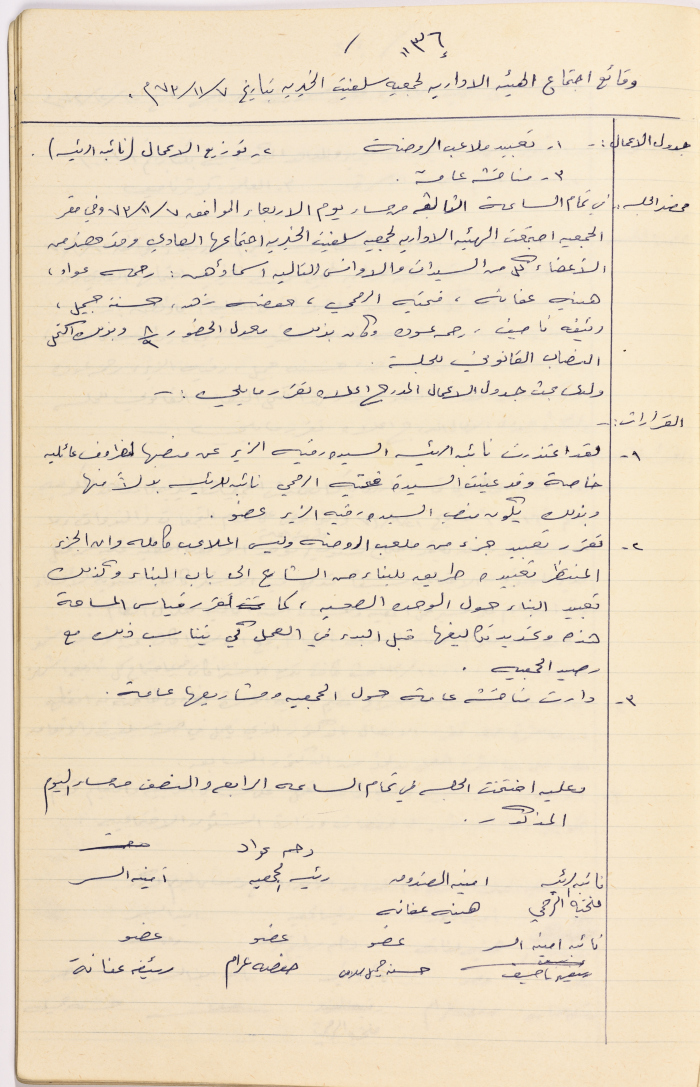 ١٣٦
وقائع اجتماع الهيئه الاداريه لجمعيه سلفيت الخيريه بتاريخ ٧٣/١١/٧ م .
جدول الاعمال :- ١- تعبيد ملاعب الروضة ٢- توزيع الاعمال (نائبه الرئيسه) .
٣- مناقشه عامة .
محضر الجلسه :- في تمام الساعة الثالثه من مساء يوم الاربعاء الموافق ٧٣/١١/٧ وفي مقر
الجمعيه اجتمعت الهيئه الاداريه لجمعيه سلفيت الخيريه اجتماعها العادي وقد حضر من
الأعضاء كل من السيدات والاوانس التاليه اسماءهن : رحمه عواد ،
هنيه عفانه ، فتحيه الرحي ، حفصه ، حسنه جميل ،
رئيفه ناصيف ، رحمه عوده وكان بذلك معدل الحضور وبذلك اكتمل
النصاب القانوني للجلسة .
ولدى بحث جدول الاعمال المدرج اعلاه تقرر ما يلي :-
القرارات :-
١- لقد اعتذرت نائبه الرئيسه السيده رقيه الزير عن منصبها لظروف عائليه
خاصة وقد عينت السيدة فتحيه الرحي نائبه للرئيسه بدلاً منها
وبذلك يكون منصب السيده رقيه الزير عضو .
٢- تقرر تعبيد جزء من ملعب الروضه وليس الملاعب كامله وان الجزء
المنتظر تعبيده طريق للبناء من الشارع الى باب البناء وكذلك
تعبيد البناء حول الوحده الصحيه ، كما تقرر قياس المساحة
هذه وتحديد تكاليفها قبل البدء في العمل كي يتناسب ذلك مع
رصيد الجمعيه .
٣- دارت مناقشه عامة حول الجمعيه ومشاريعها عامة .
وعليه اختتمت الجلسه في تمام الساعه الرابعه والنصف من مساء اليوم
المذكور .
رحمه عواد
نائبه الرئيسه امينه الصندوق رئيسه الجمعيه امينه السر
فتحيه الرحي هنيه عفانه
نائبه امينه السر عضو عضو عضو
رئيفه ناصيف حسنه جميل حفصه عزام رئيفه عفانة